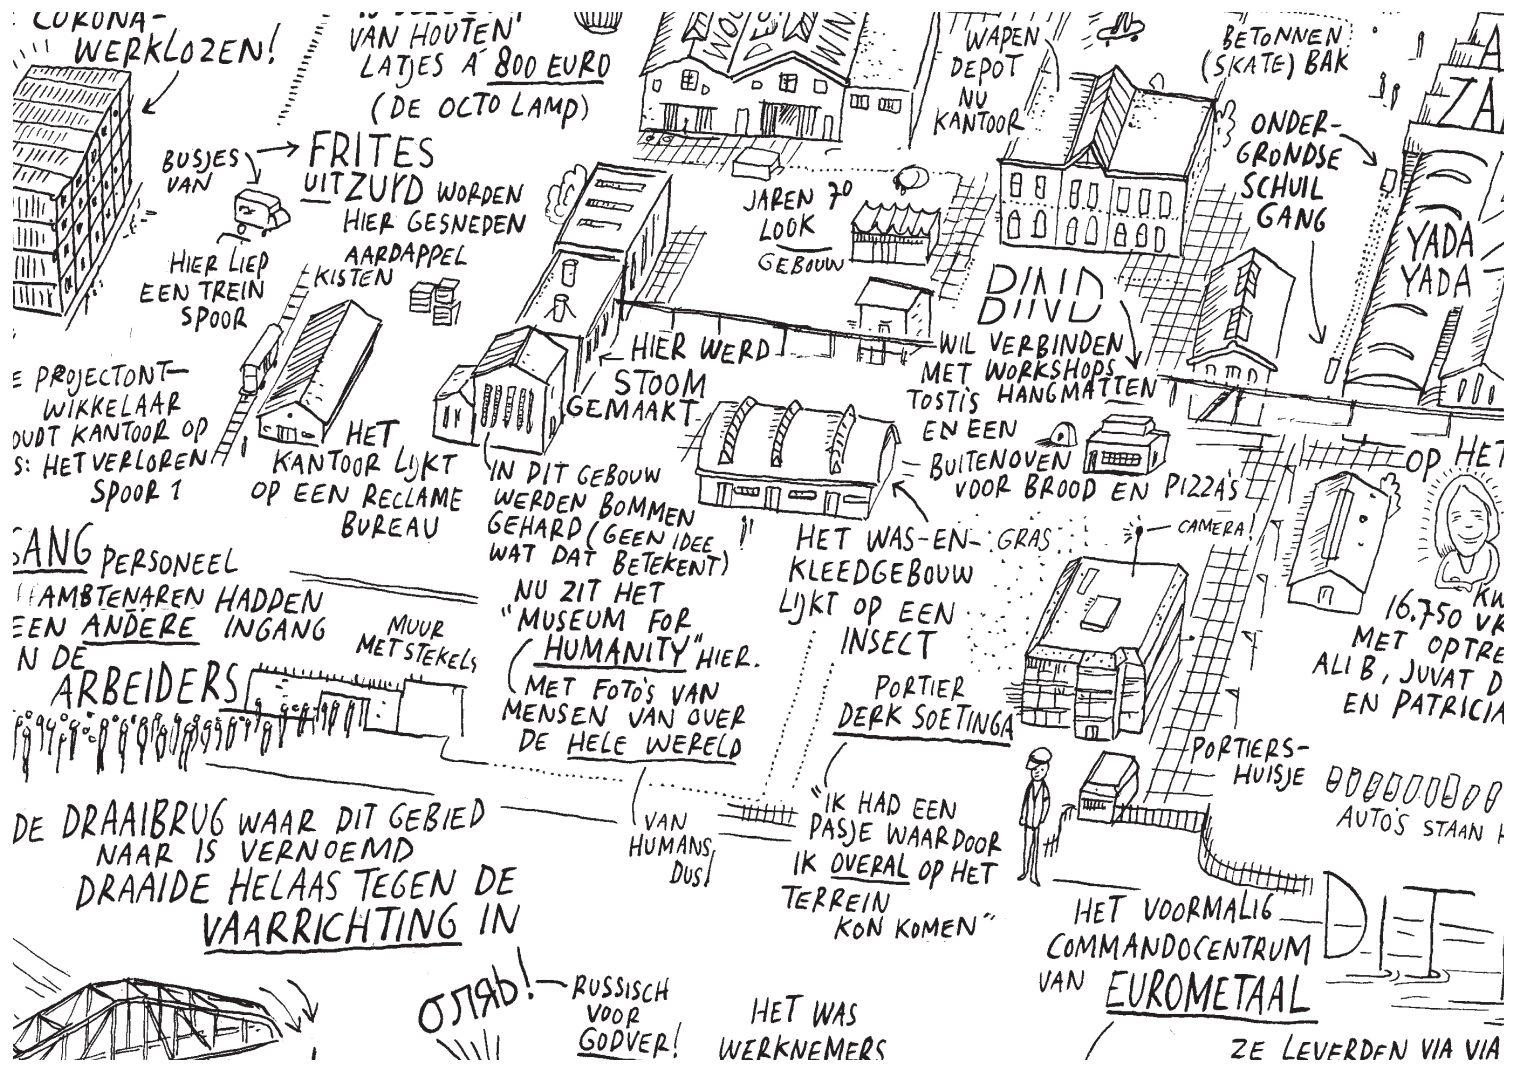 CORONA-
WERKLOZEN!
VAN HOUTEN
LATJES Á 800 EURO
(DE OCTO LAMP)
WAPEN
DEPOT
NU
KANTOOR
BETONNEN
(SKATE) BAK
ONDER-
GRONDSE
SCHUIL
GANG
ZA
YADA
YADA
BUSJES
VAN
FRITES
UITZUYD WORDEN
HIER GESNEDEN
AARDAPPEL
KISTEN
HIER LIEP
EEN TREIN
SPOOR
JAREN 70
LOOK
GEBOUW
DIND
DIND
WIL VERBINDEN
MET WORKSHOPS
TOSTI'S HANGMATTEN
EN EEN
BUITENOVEN
VOOR BROOD EN PIZZA'S
HIER WERD
STOOM
GEMAAKT
E PROJECTONT-
WIKKELAAR
OUDT KANTOOR OP
S: HET VERLOREN
SPOOR 1
HET
KANTOOR LIJKT
OP EEN RECLAME
BUREAU
IN DIT GEBOUW
WERDEN BOMMEN
GEHARD (GEEN IDEE
WAT DAT BETEKENT)
NU ZIT HET
"MUSEUM FOR
HUMANITY" HIER.
MET FOTO'S VAN
MENSEN VAN OVER
DE HELE WERELD
VAN
HUMANS,
DUS!
HET WAS-EN-
KLEEDGEBOUW
LIJKT OP EEN
INSECT
GRAS
CAMERA!
OP HET
16.750 VR
MET OPTRE
ALI B, JUVAT D
EN PATRICIA
GANG PERSONEEL
AMBTENAREN HADDEN
EEN ANDERE INGANG
N DE
ARBEIDERS
MUUR
MET STEKELS
PORTIER
DERK SOETINGA
"IK HAD EEN
PASJE WAARDOOR
IK OVERAL OP HET
TERREIN
KON KOMEN"
PORTIERS-
HUISJE
AUTO'S STAAN H
DE DRAAIBRUG WAAR DIT GEBIED
NAAR IS VERNOEMD
DRAAIDE HELAAS TEGEN DE
VAARRICHTING IN
HET VOORMALIG
COMMANDOCENTRUM
VAN EUROMETAAL
DIT
ОЛЯЬ!
RUSSISCH
VOOR
GODVER!
HET WAS
WERKNEMERS
ZE LEVERDEN VIA VIA